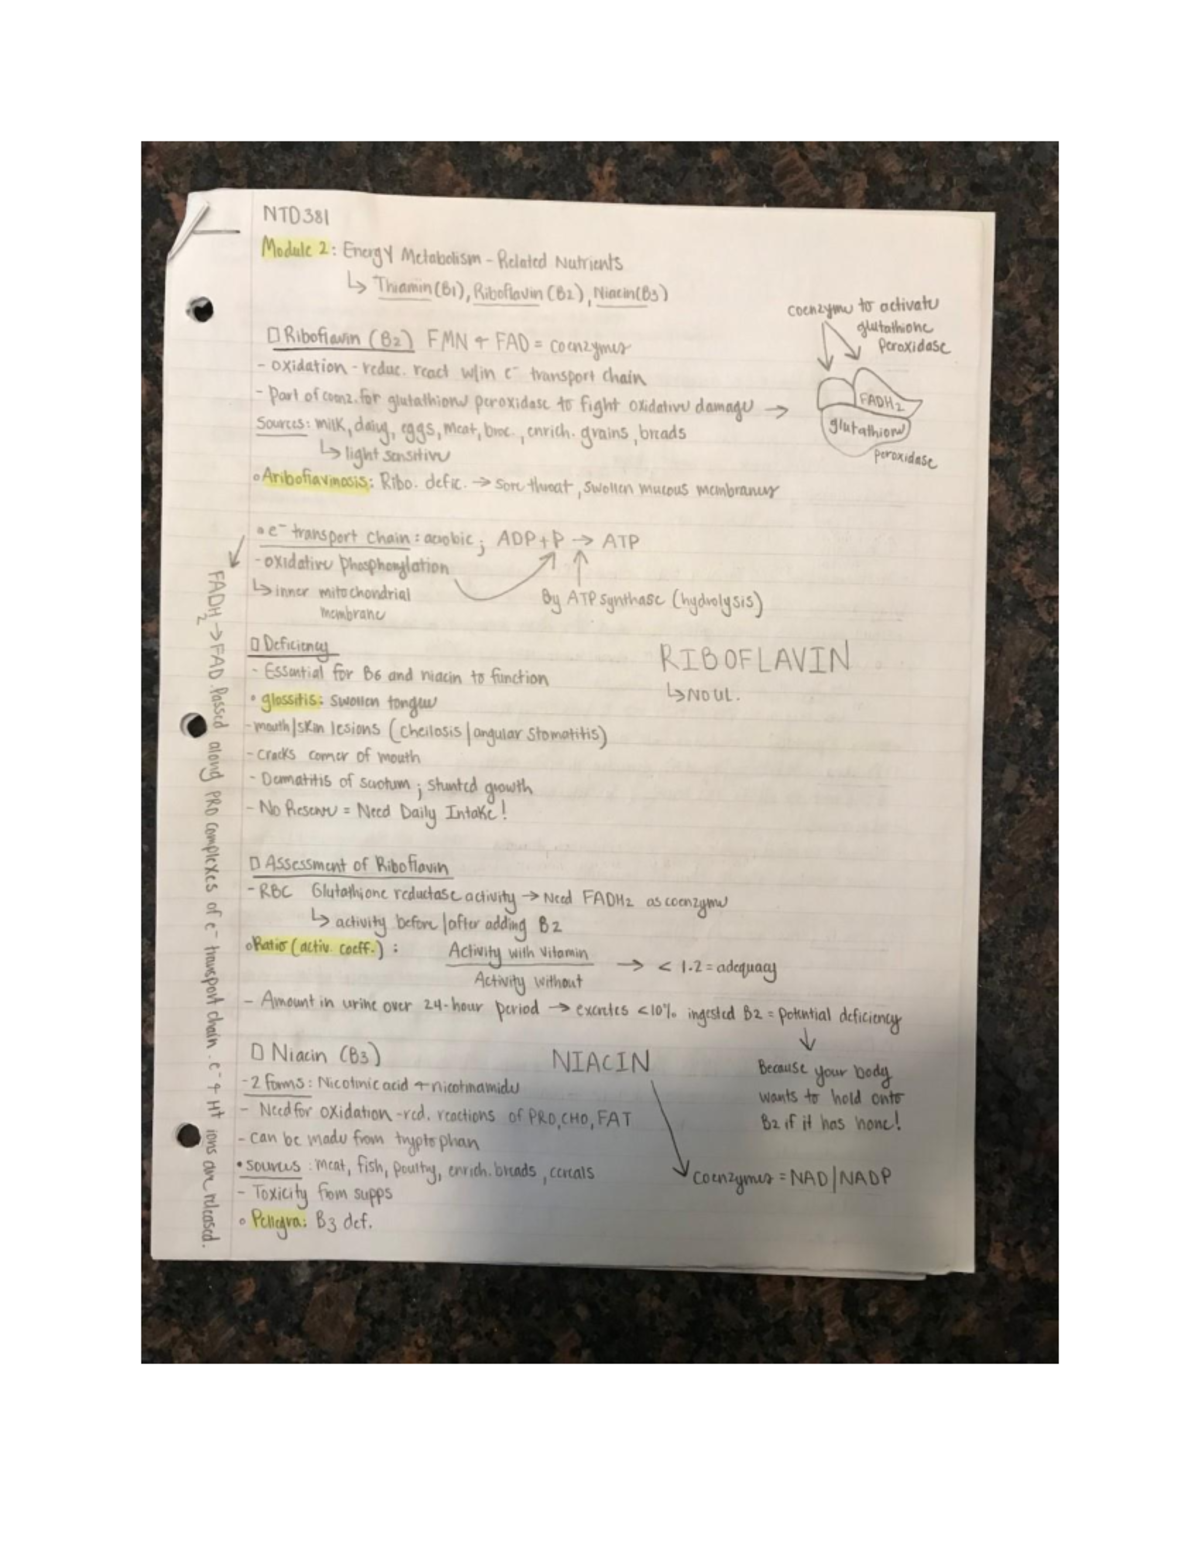 NTD381
Module 2: Energy Metabolism - Related Nutrients
↳ Thiamin (B1), Riboflavin (B2), Niacin (B3)
coenzyme to activate
glutathione
peroxidase
FADH2
glutathione
peroxidase
□ Riboflavin (B2) FMN + FAD = coenzymes
- oxidation - reduc. react w/in e⁻ transport chain
- Part of coenz. for glutathione peroxidase to fight oxidative damage →
Sources: milk, dairy, eggs, meat, broc., enrich. grains, breads
↳ light sensitive
• Ariboflavinosis: Ribo. defic. → sore throat, swollen mucous membranes
• e⁻ transport chain: aerobic; ADP + P → ATP
- oxidative phosphorylation
↳ inner mitochondrial
membrane
By ATP synthase (hydrolysis)
FADH2 → FAD. Passed along PRO complexes of e⁻ transport chain. e⁻ + H+ ions are released.
□ Deficiency
- Essential for B6 and niacin to function
• glossitis: swollen tongue
- mouth/skin lesions (cheilosis/angular stomatitis)
- cracks corner of mouth
- Dermatitis of scrotum; stunted growth
- No Reserve = Need Daily Intake!
RIBOFLAVIN
↳ NO UL.
□ Assessment of Riboflavin
- RBC Glutathione reductase activity → Need FADH2 as coenzyme
↳ activity before/after adding B2
• Ratio (activ. coeff.): Activity with vitamin → < 1.2 = adequacy
Activity without
- Amount in urine over 24-hour period → excretes <10% ingested B2 = potential deficiency
Because your body
wants to hold onto
B2 if it has none!
□ Niacin (B3)
- 2 forms: Nicotinic acid + nicotinamide
- Need for oxidation -red. reactions of PRO, CHO, FAT
- can be made from tryptophan
• sources: meat, fish, poultry, enrich. breads, cereals
- Toxicity from supps
• Pellegra: B3 def.
NIACIN
Coenzymes = NAD/NADP